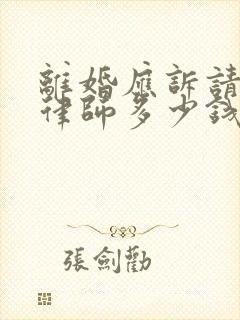 離婚應訴請
律師多少錢
張劍勸